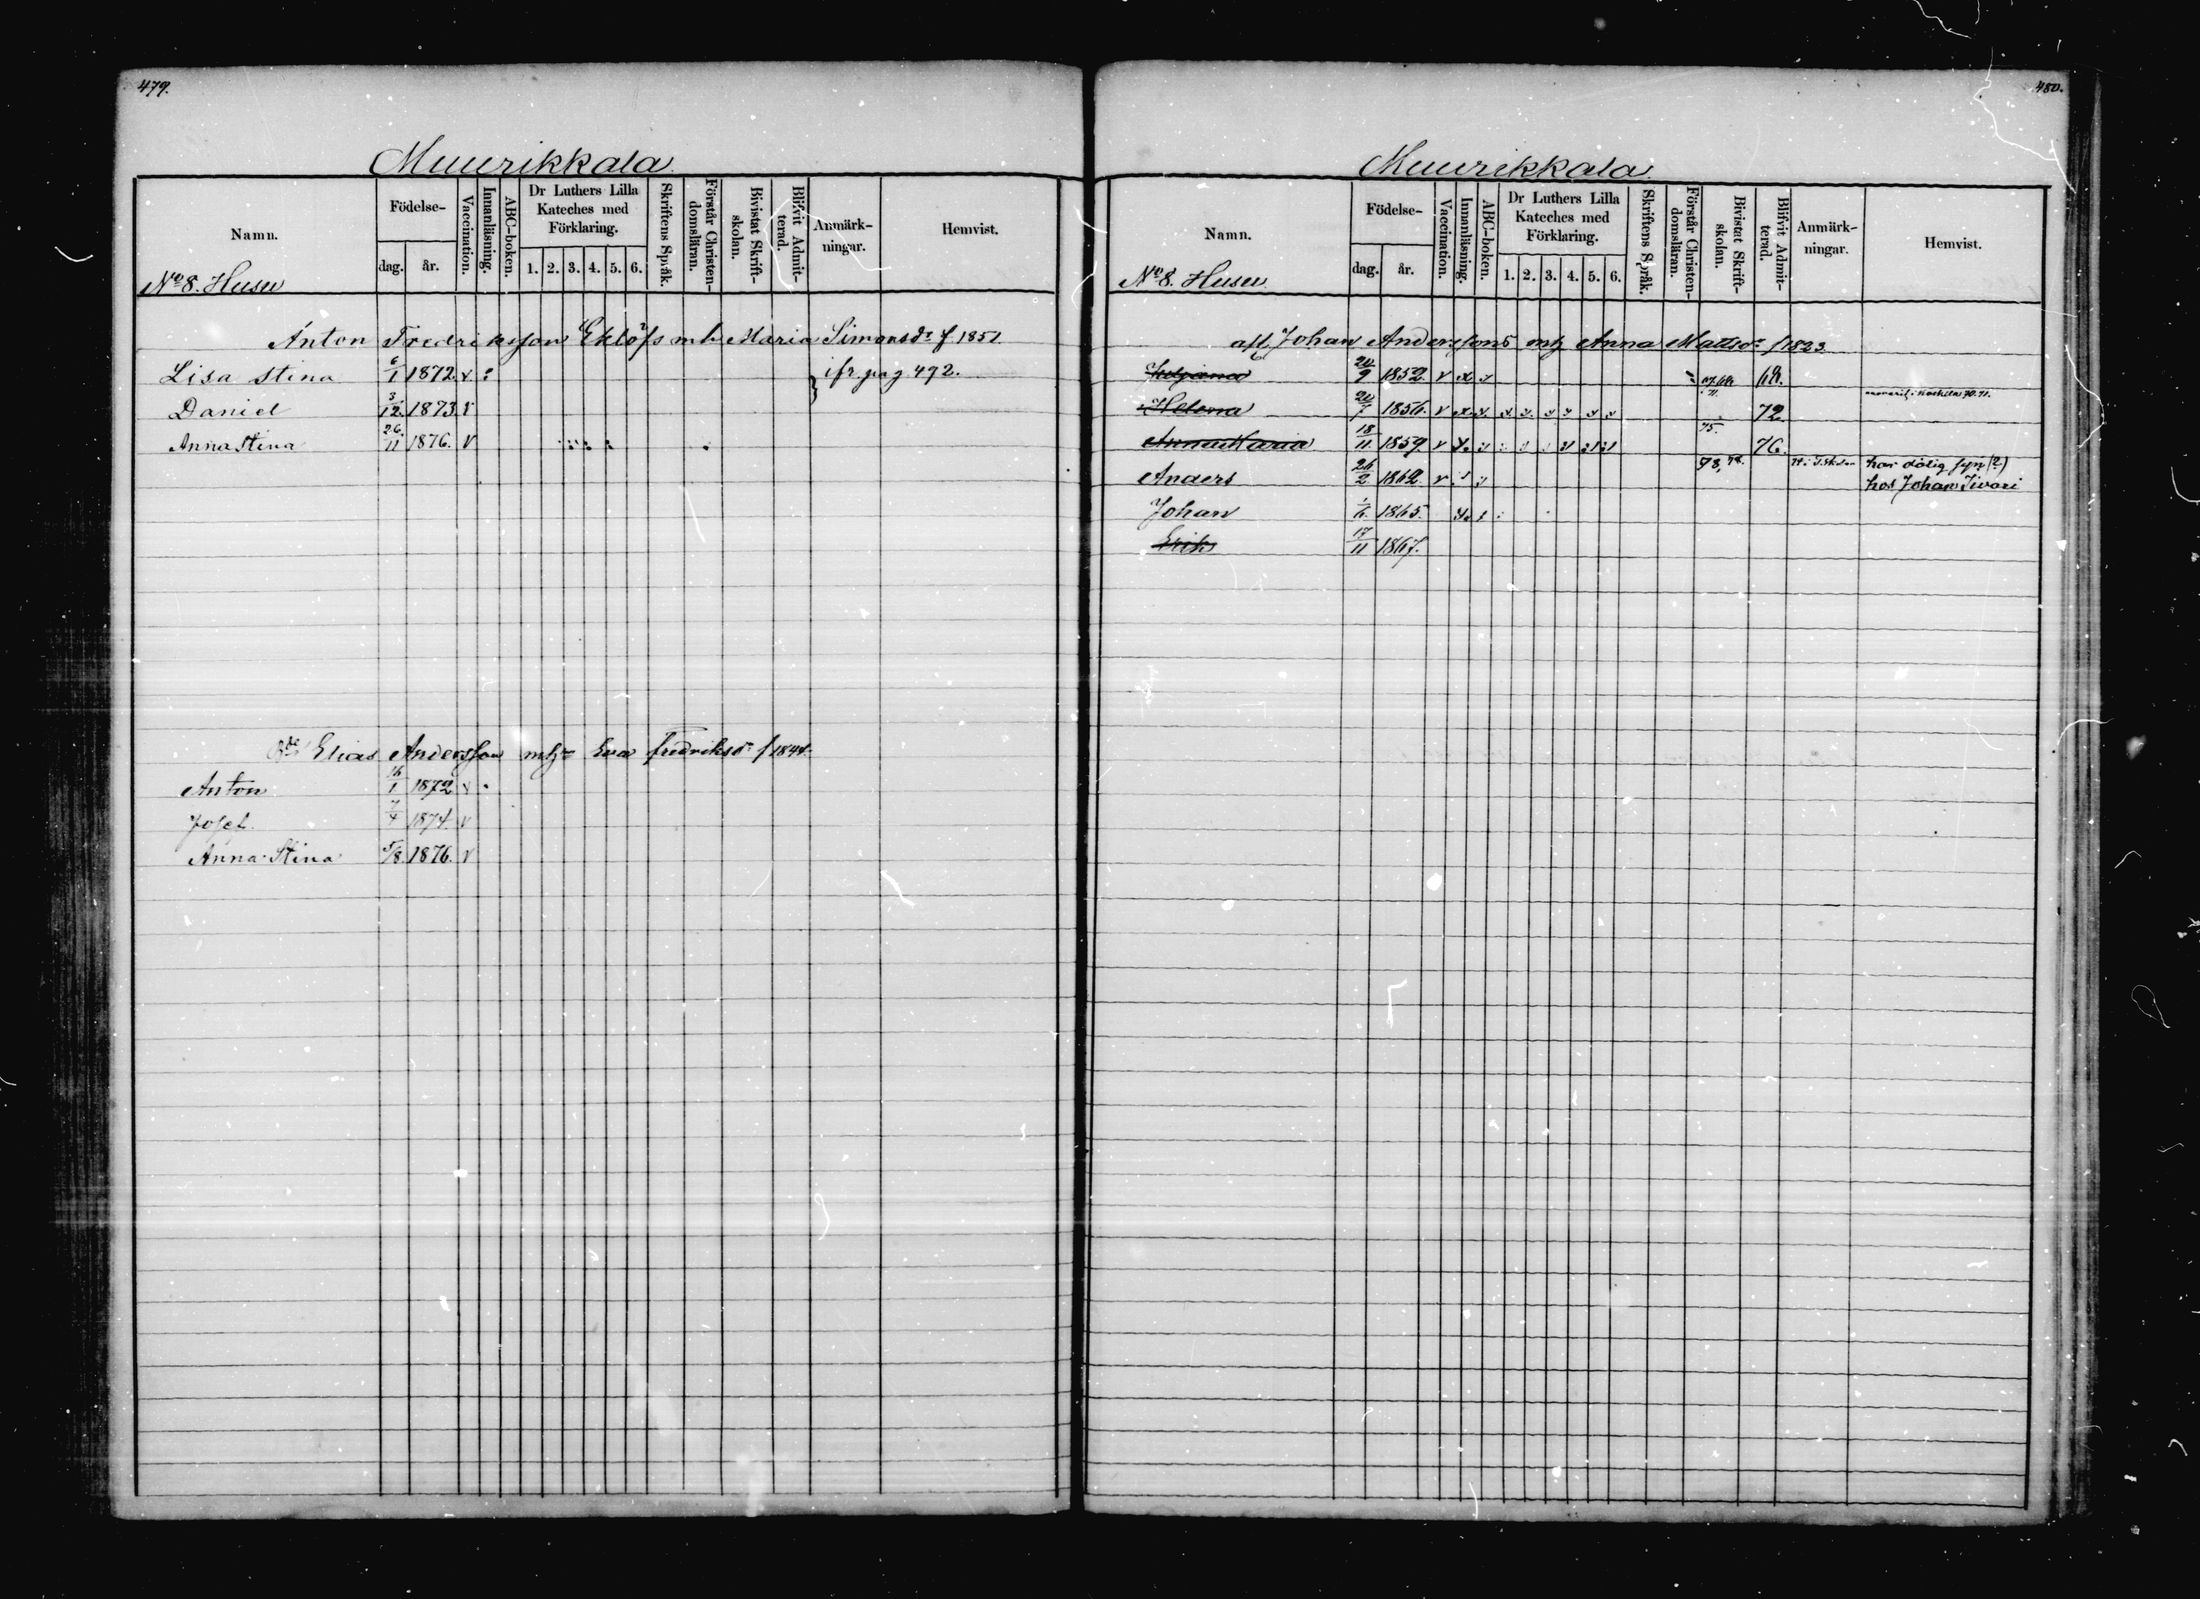 479.
Muurikkala.
Namn.
Födelse-
dag. år.
Vaccination.
Innanläsning.
ABC-boken.
Dr Luthers Lilla Kateches med Förklaring.
1. 2. 3. 4. 5. 6.
Skriftens Språk.
Förstår Christendomsläran.
Bivistat Skriftskolan.
Blifvit Admitterad.
Anmärkningar.
Hemvist.
No 8. Husu
Anton Fredriksson Eklöfs mh Maria Simonsdr f 1851
Lisa Stina 6/1 1872. v ifr. pag 492.
Daniel 3/12. 1873 v
Anna Stina 26./11 1876. v
Elias Andersson mh Eva Fredriksdr f 1844.
Anton 16/1 1872 v
Josef 7/4 1874. v
Anna Stina 5/8 1876. v
480.
Muurikkala.
Namn.
Födelse-
dag. år.
Vaccination.
Innanläsning.
ABC-boken.
Dr Luthers Lilla Kateches med Förklaring.
1. 2. 3. 4. 5. 6.
Skriftens Språk.
Förstår Christendomsläran.
Bivistat Skriftskolan.
Blifvit Admitterad.
Anmärkningar.
Hemvist.
No 8. Husu
afl. Johan Anderssons mh Anna Mattsdr f 1823
20/9 1852. v x 68.
Helena 20/7 1856. v x 72.
Anna Maria 18/11 1859. v 75. 76.
Anders 26/2 1862. v har dålig syn (2)
hos Johan Sivari
Johan 1/6. 1865.
Erik 17/11 1867.